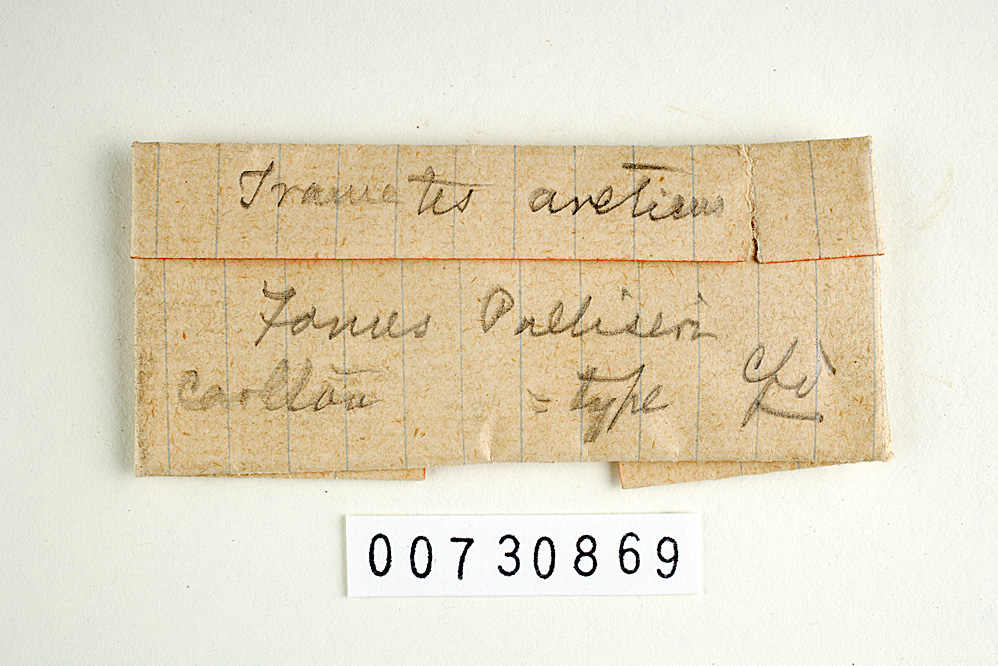 Trametes arcticus
Fomes Palliseri
Carlton = type
00730869